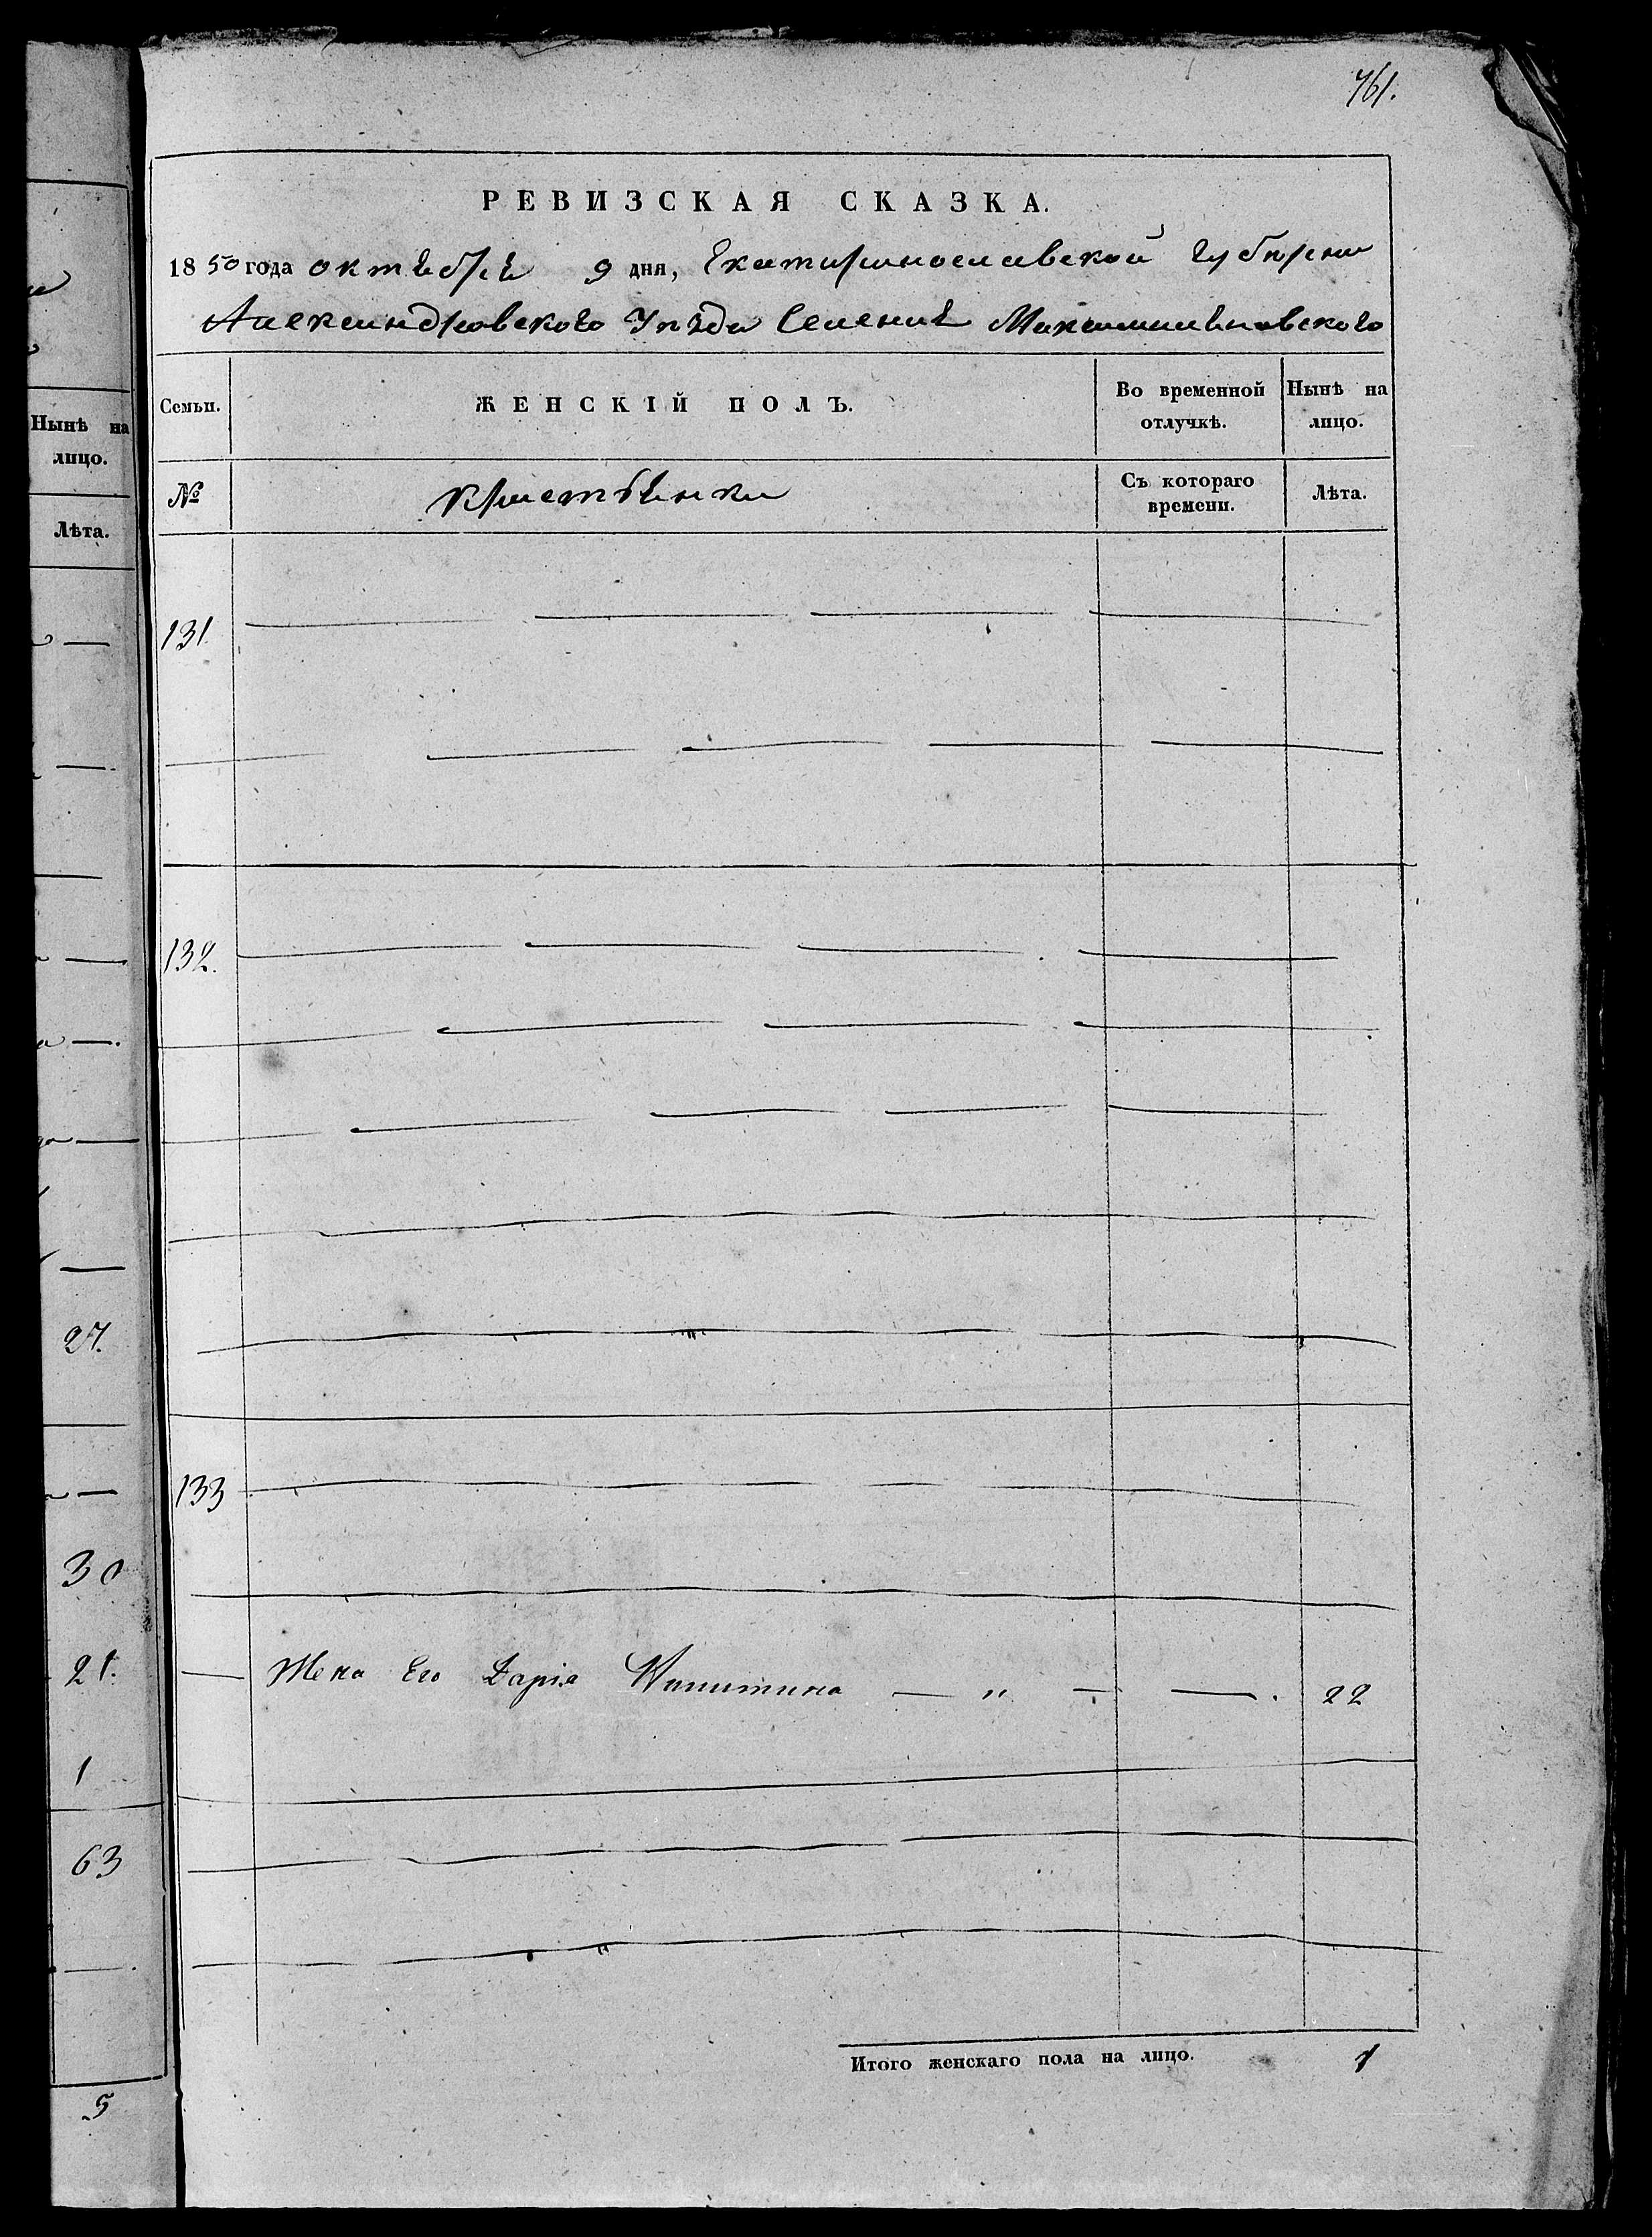 761.
РЕВИЗСКАЯ СКАЗКА.
1850 года октября 9 дня, Екатеринославской Губернии
Александровского Уезда Селения Максимильяновского
Семьи.
ЖЕНСКІЙ ПОЛЪ.
Во временной отлучкѣ.
Нынѣ на лицо.
№
крестьянки
Съ котораго времени.
Лѣта.
131.
132.
133
— Жена Его Дарія Никитина — " — — . 22
Итого женскаго пола на лицо. 1
Нынѣ на
лицо.
Лѣта.
27.
30
21.
1
63
5